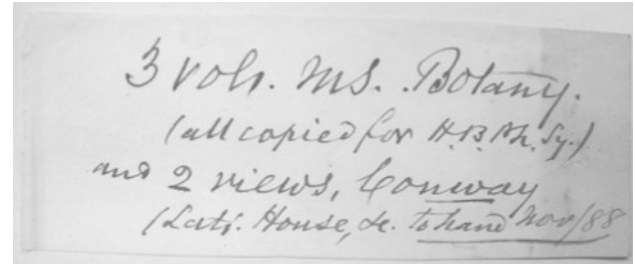 3 vols. MS. Botany.
(all copied for H.B. Sy.)
and 2 views, Conway
House, &c. To hand Nov/88